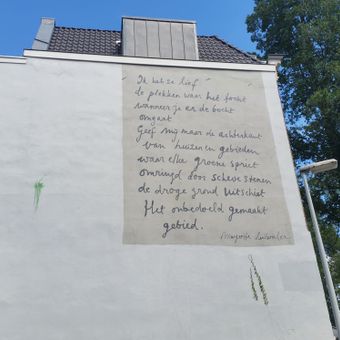 Ik heb ze lief
de plekken waar het tocht
wanneer je er de bocht
omgaat
Geef mij maar de achterkant
van huizen en gebieden
waar elke groene spriet
omringd door scheve stenen
de droge grond uitschiet
Het onbedoeld gemaakt
gebied.